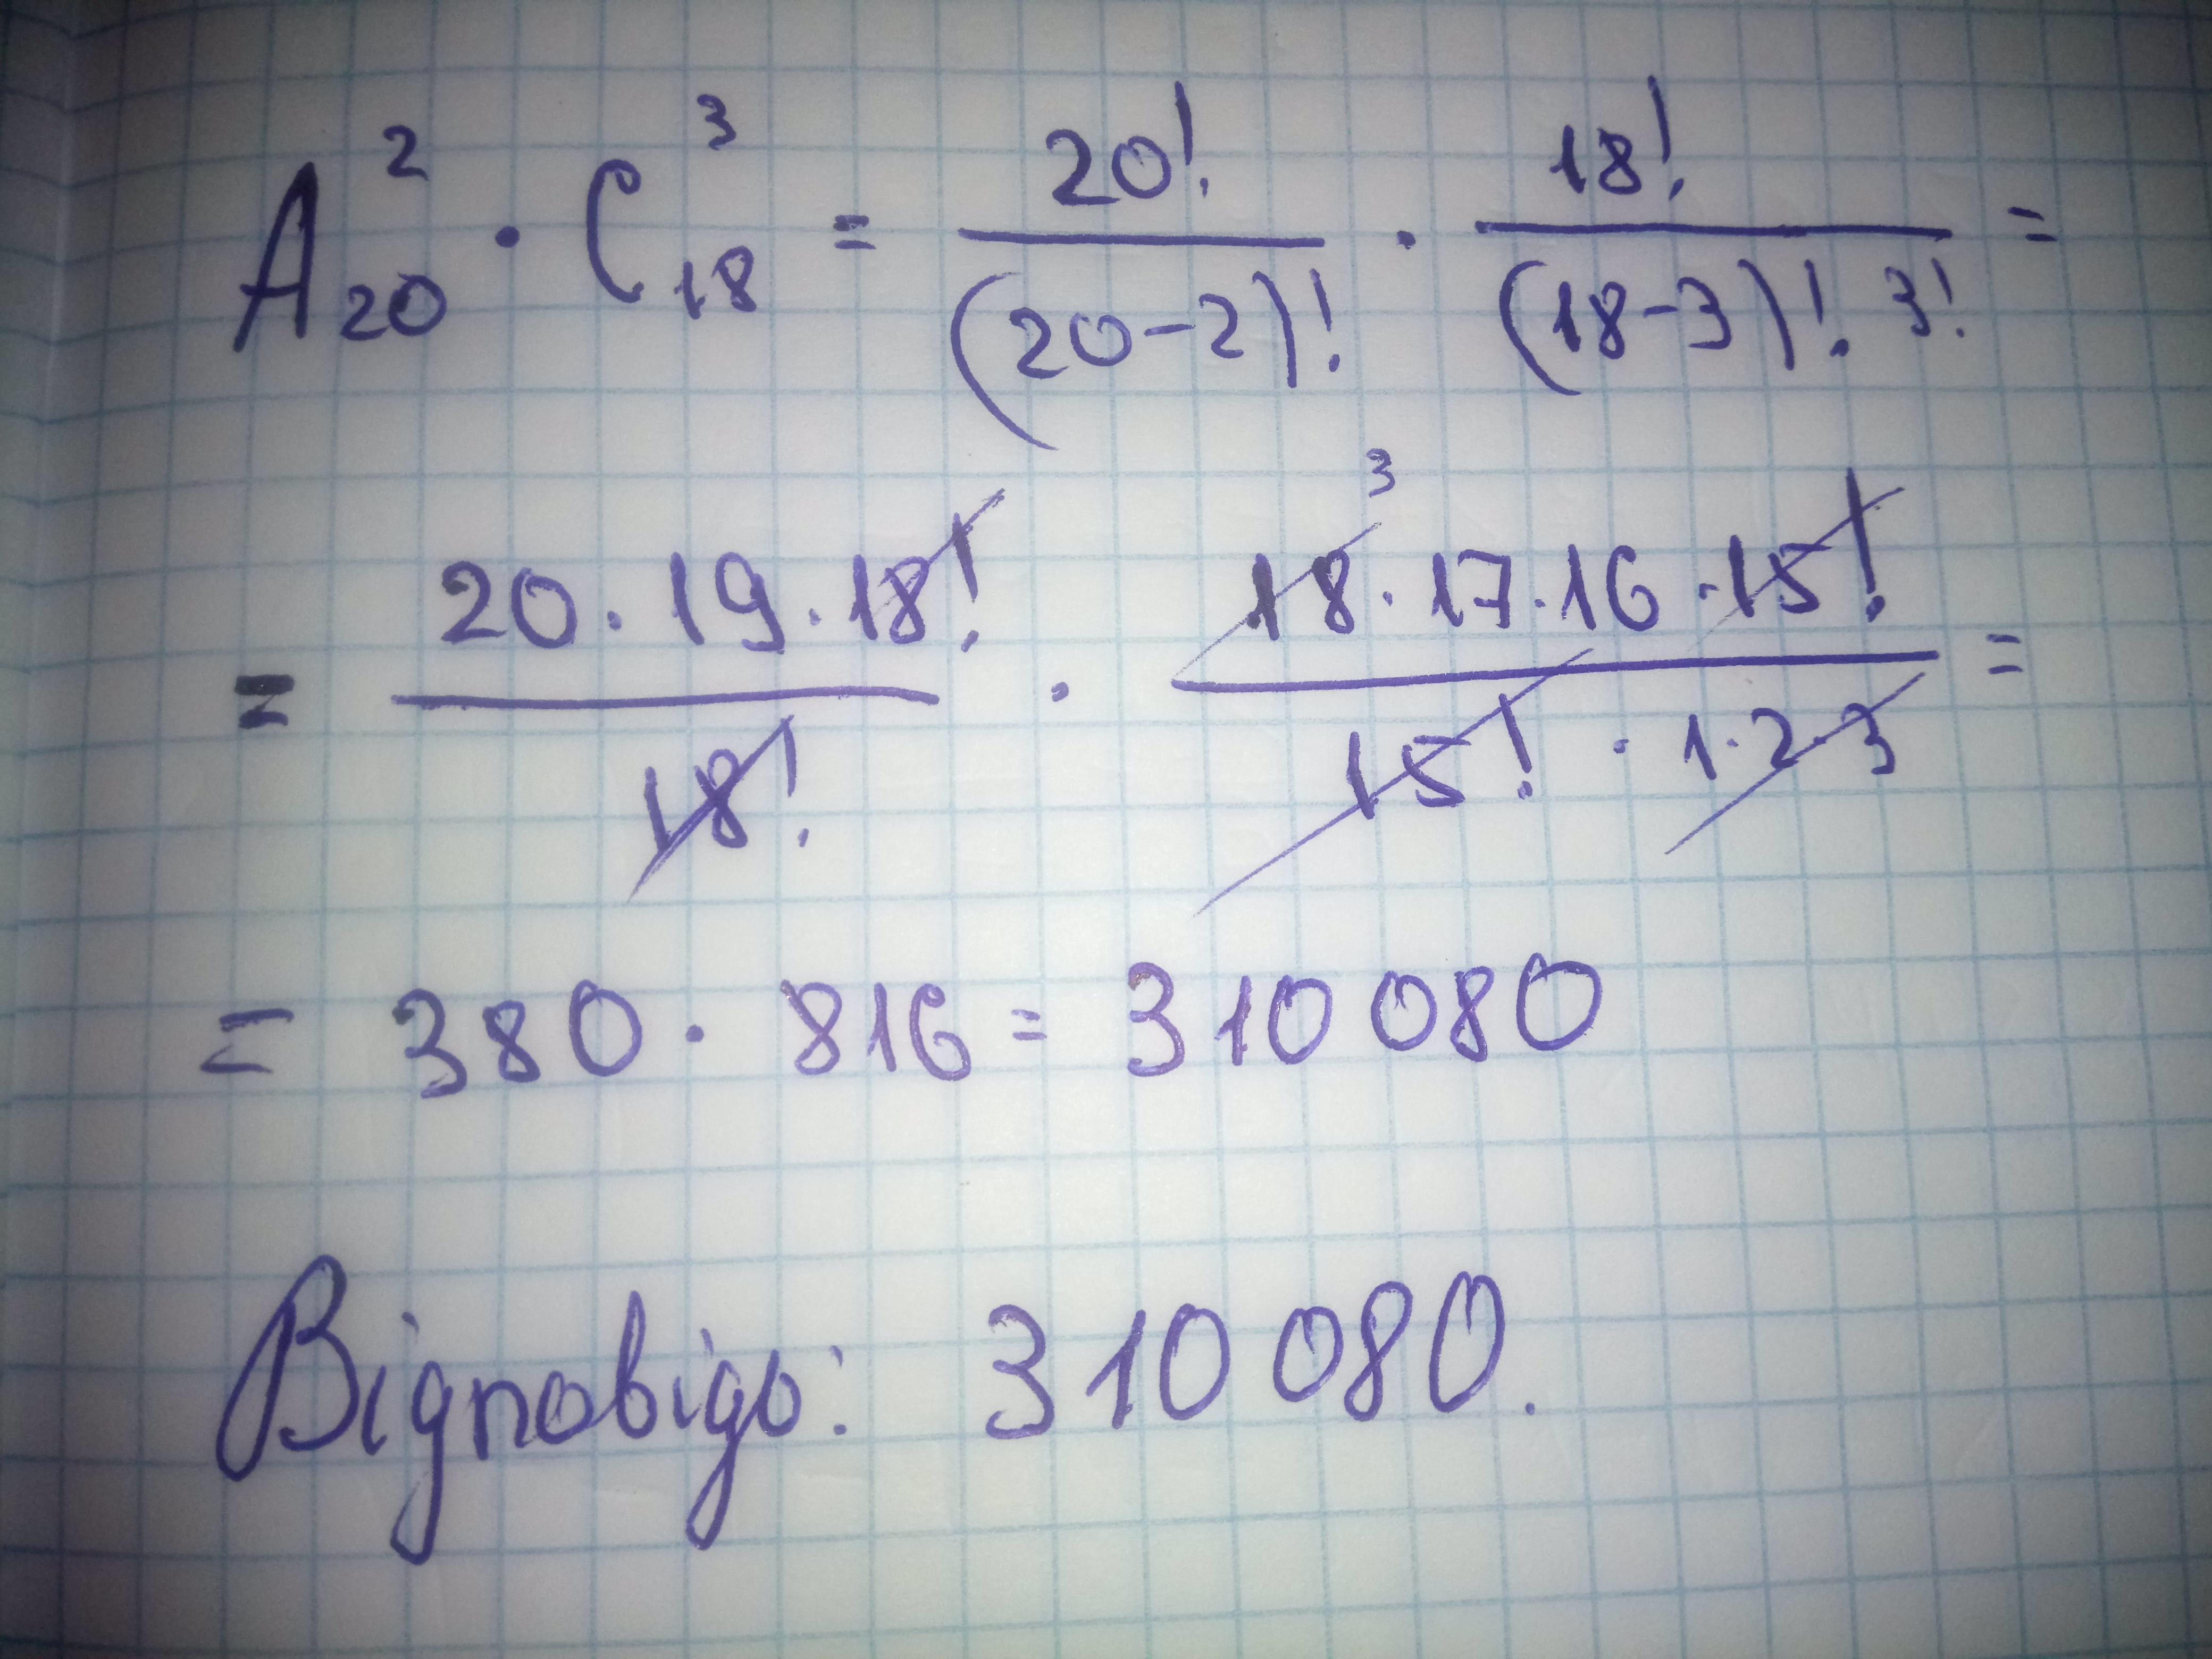 A²₂₀ · C³₁₈ = 20! / (20-2)! · 18! / (18-3)! · 3! =
= 20 · 19 · 18! / 18! · 3 18 · 17 · 16 · 15! / 15! · 1 · 2 · 3 =
= 380 · 816 = 310 080
Відповідь: 310 080.